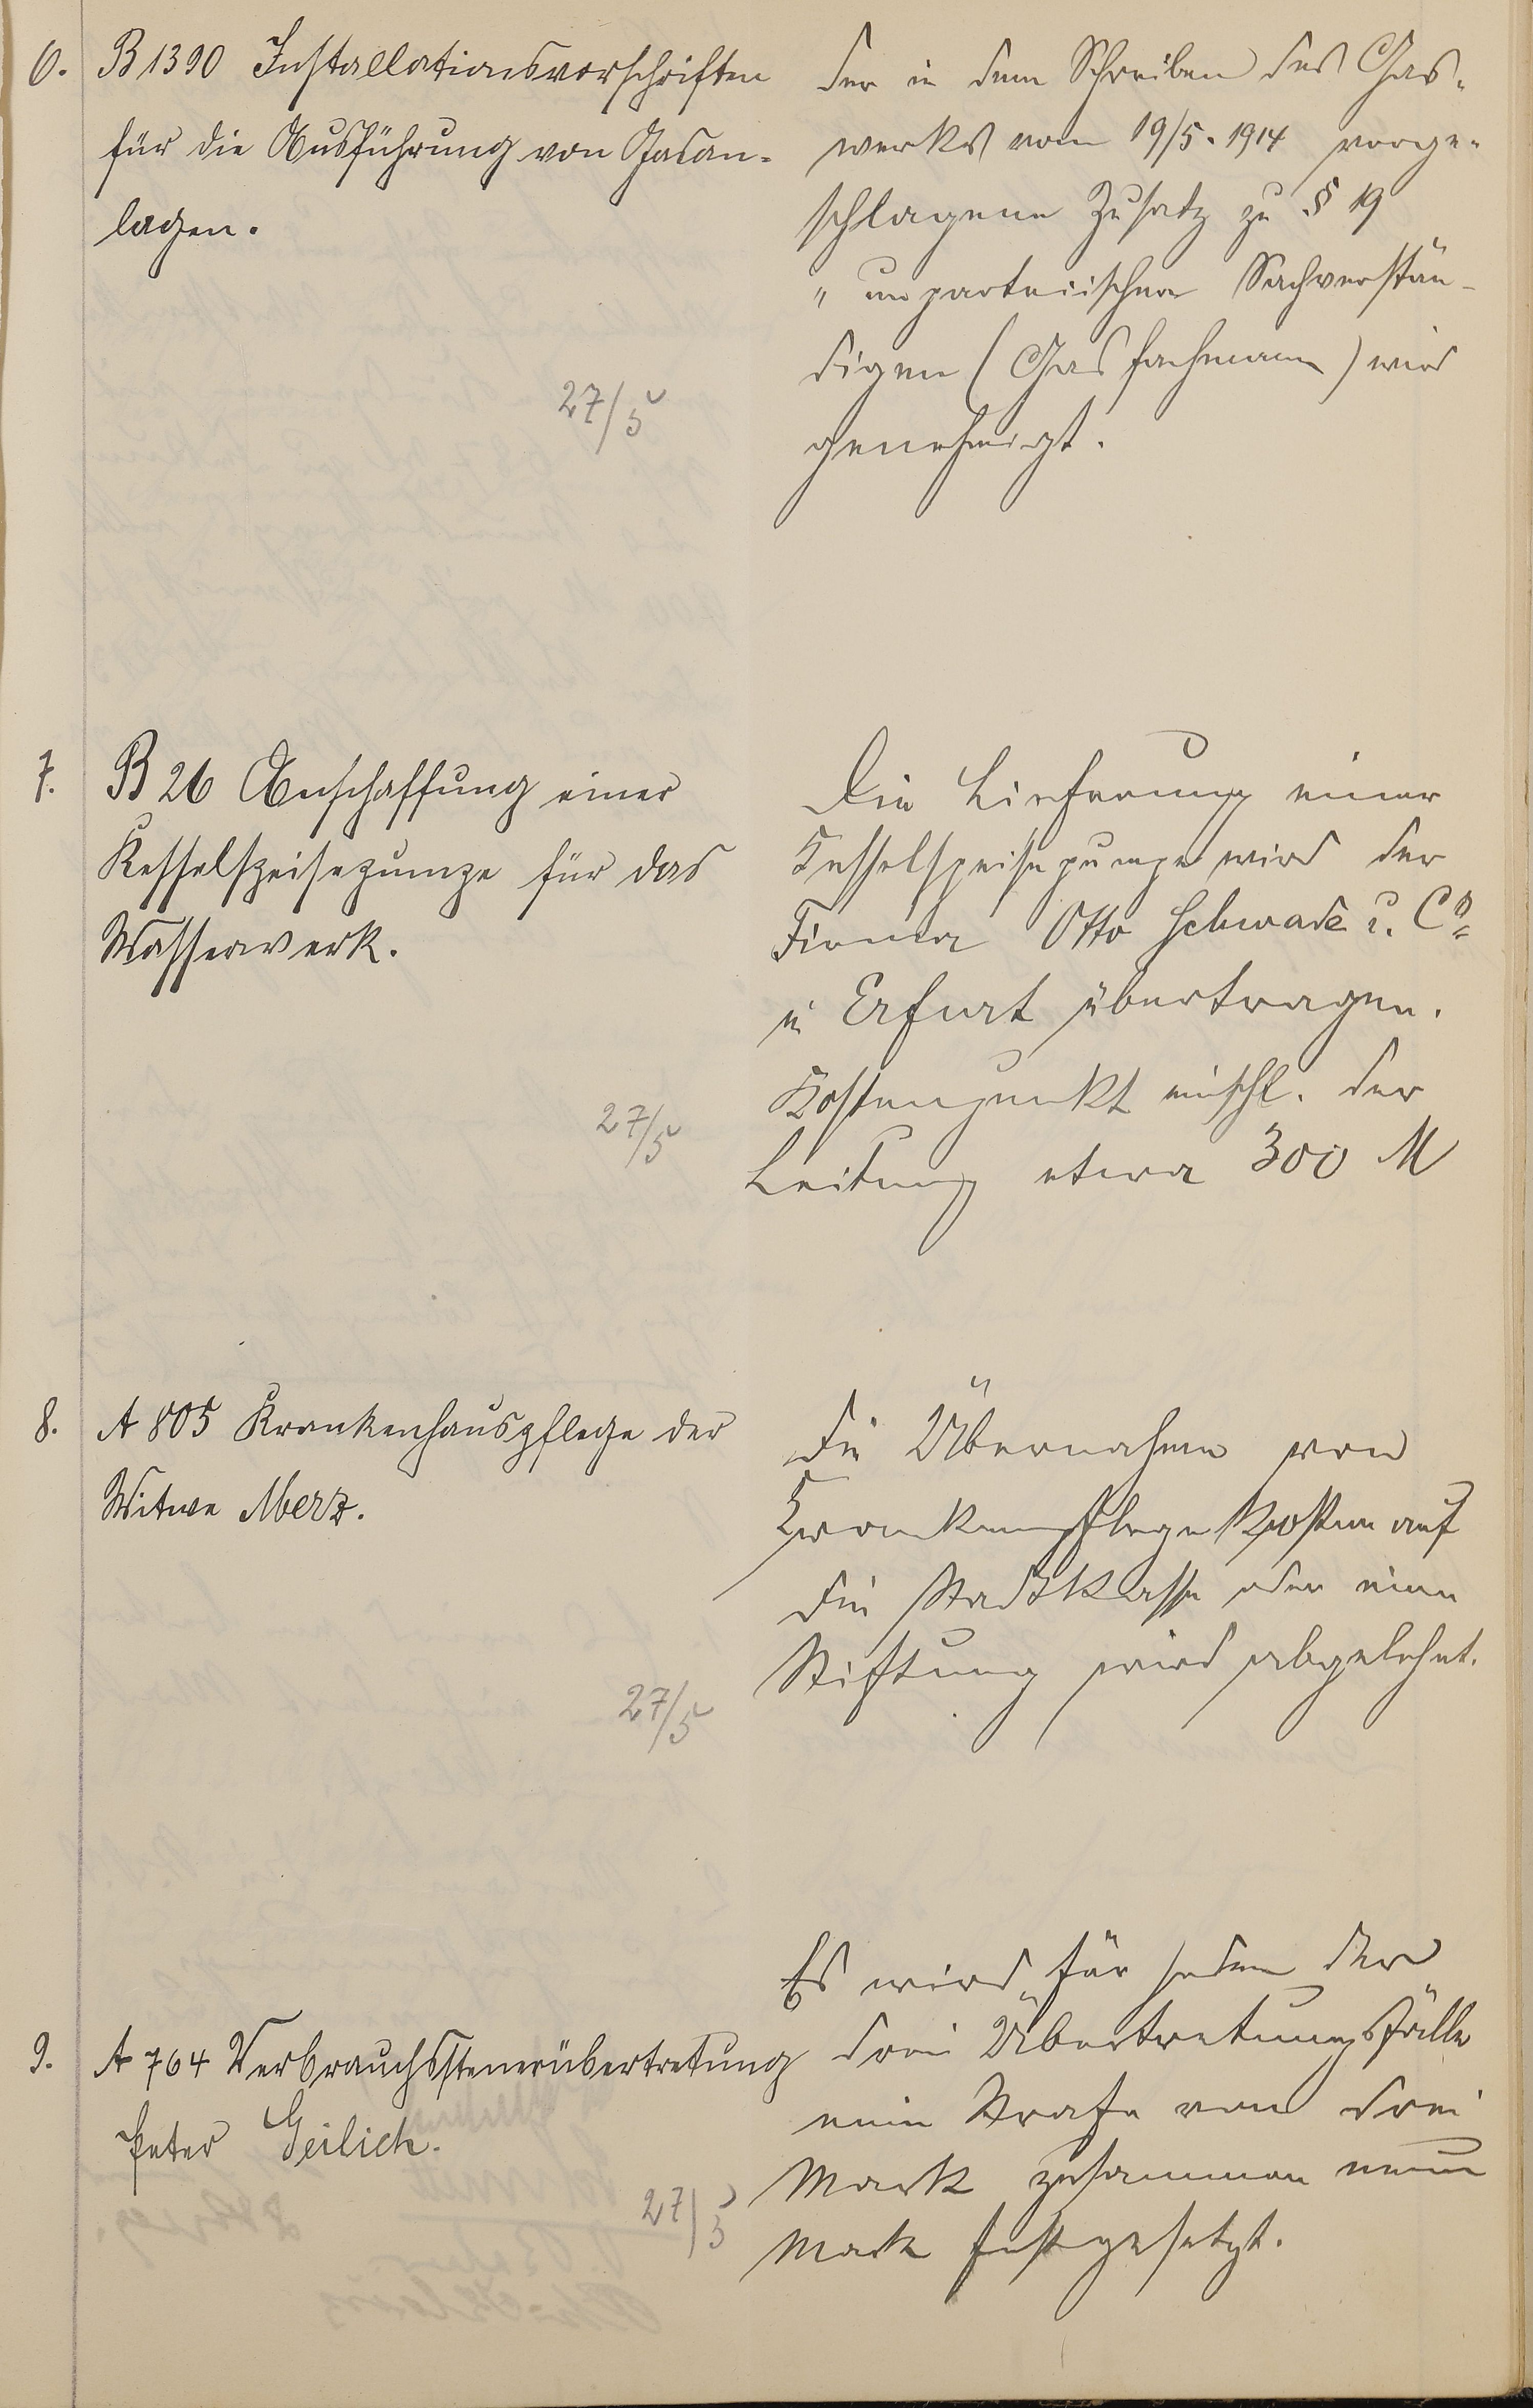 6. B 1390 Installationsvorschriften
für die Ausführung von Gasan-
lagen.
27/5
der in dem Schreiben des Gas-
werks vom 19/5. 1914 vorge-
schlagene Zusatz zu § 19
" unparteiischen Sachverstän-
digen (Gasfachmann) wird
genehmigt.
7. B 26 Anschaffung einer
Kesselspeisepumpe für das
Wasserwerk.
27/5
Die Lieferung einer
Kesselspeisepumpe wird der
Firma Otto Schwade u. Co
in Erfurt übertragen.
Kostenpunkt einschl. der
Leitung etwa 300 M
8. A 805 Krankenhauspflege der
Witwe Merz.
27/5
Die Übernahme von
Krankenpflegekosten auf
die Stadtkasse oder eine
Stiftung wird abgelehnt.
9. A 764 Verbrauchssteuerübertretung
Peter Geilich.
27/5
Es wird für jeden der
drei Übertretungsfälle
eine Strafe von drei
Mark zusammen neun
Mark festgesetzt.